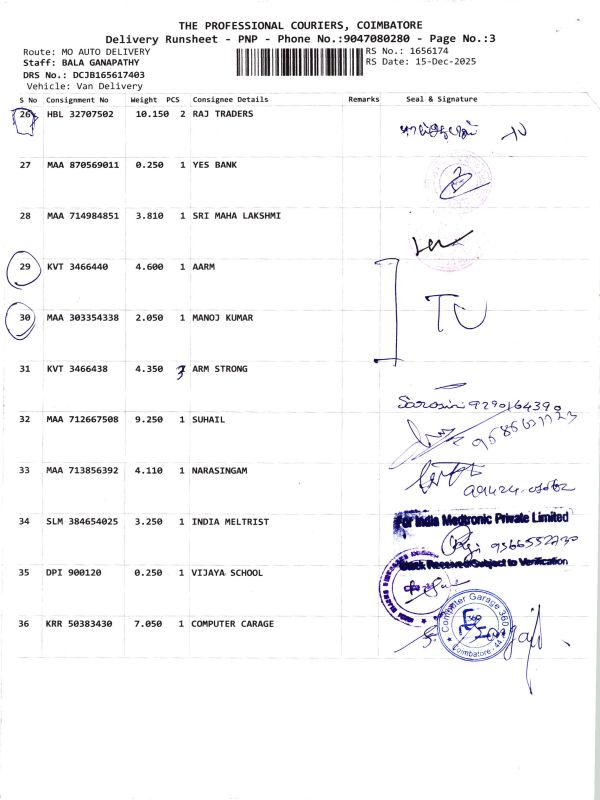 THE PROFESSIONAL COURIERS, COIMBATORE
Delivery Runsheet - PNP - Phone No.:9047080280 - Page No.:3
Route: MO AUTO DELIVERY
RS No.: 1656174
Staff: BALA GANAPATHY
RS Date: 15-Dec-2025
DRS No.: DCJB165617403
Vehicle: Van Delivery
S No Consignment No Weight PCS Consignee Details Remarks Seal & Signature
26 HBL 32707502 10.150 2 RAJ TRADERS
27 MAA 870569011 0.250 1 YES BANK
28 MAA 714984851 3.810 1 SRI MAHA LAKSHMI
29 KVT 3466440 4.600 1 AARM
30 MAA 303354338 2.050 1 MANOJ KUMAR
31 KVT 3466438 4.350 3 ARM STRONG
Sarosini 9290164390
32 MAA 712667508 9.250 1 SUHAIL
33 MAA 713856392 4.110 1 NARASINGAM
34 SLM 384654025 3.250 1 INDIA MELTRIST
For India Medtronic Private Limited
9566552730
Stock Received Subject to Verification
35 DPI 900120 0.250 1 VIJAYA SCHOOL
36 KRR 50383430 7.050 1 COMPUTER CARAGE
Computer Garage 360
Coimbatore - 44